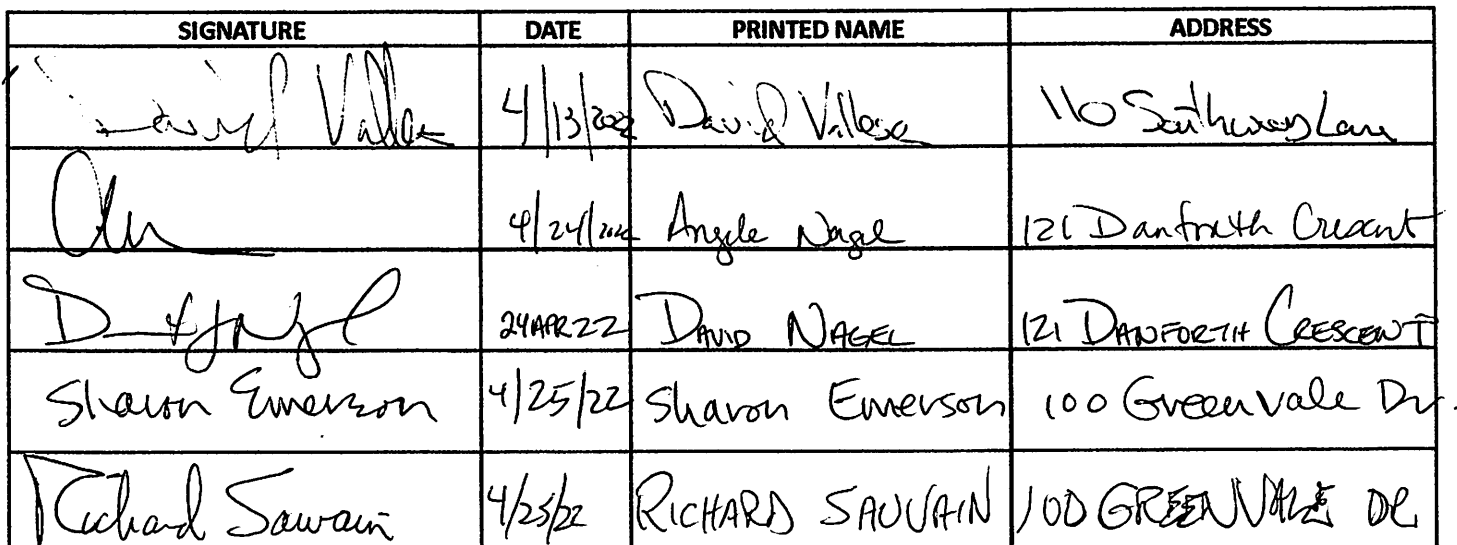 SIGNATURE DATE PRINTED NAME ADDRESS
David 4/13/2022 David 110 Southway Lane
4/24/2022 Angele Nagel 121 Danforth Crescent
24APR22 DAVID NAGEL 121 DANFORTH CRESCENT
Sharon Emerson 4/25/22 Sharon Emerson 100 Greenvale Dr.
Richard Sauvain 4/25/22 RICHARD SAUVAIN 100 GREENVALE DR